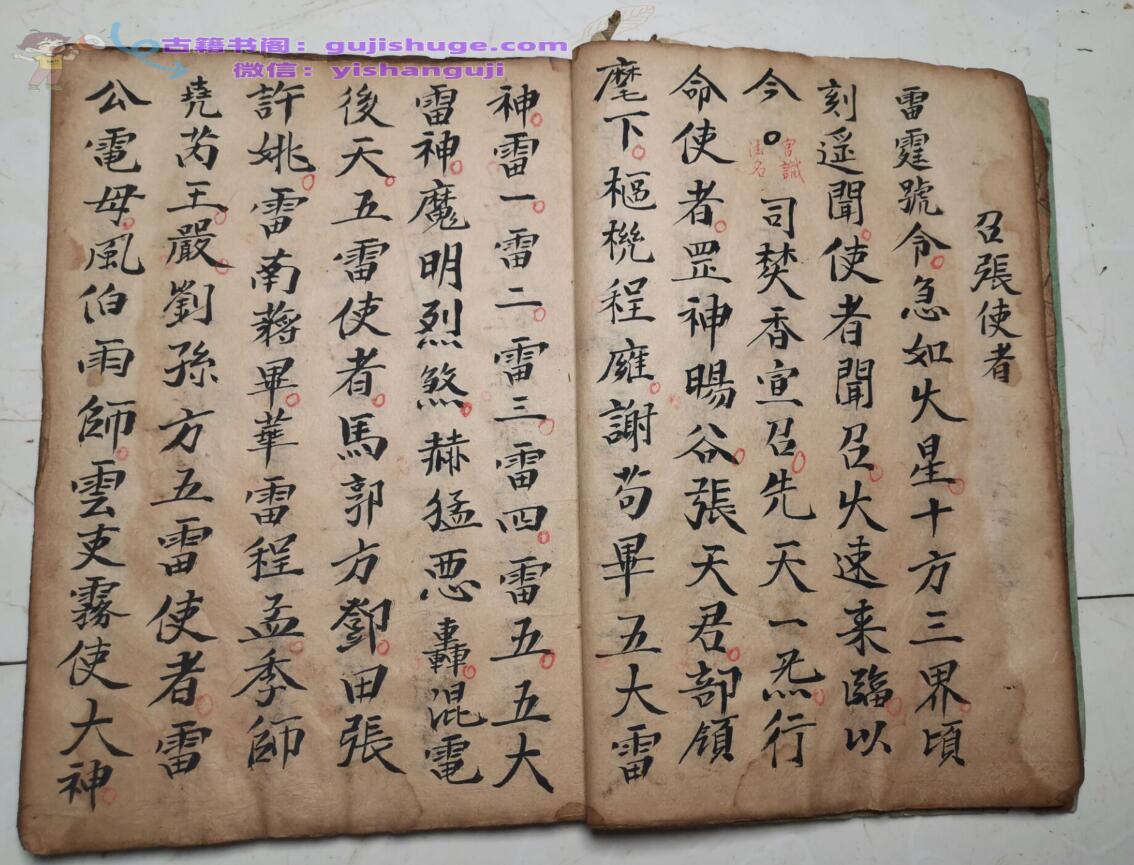 古籍书阁：gujishuge.com
微信：yishanguji
召張使者
雷霆號令急如火星十方三界頃
刻遥聞使者聞召火速来臨以
今。官誠法名司焚香宣召先天一炁行
命使者罡神暘谷張天君部領
麾下樞机程雍謝苟畢五大雷
神雷一雷二雷三雷四雷五五大
雷神魔明烈煞赫猛惡轟混電
後天五雷使者馬郭方鄧田張
許姚雷南蔣畢華雷程孟季師
堯芮王嚴劉孫方五雷使者雷
公電母風伯雨師雲吏霧使大神